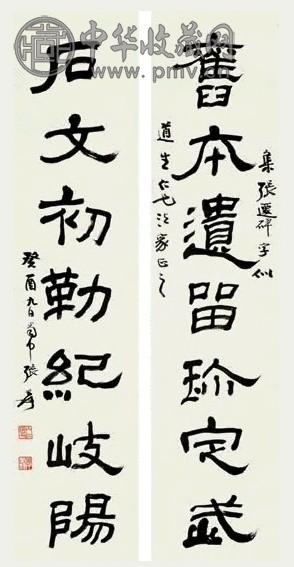 中华收藏网
www.pmv.cn
集張遷碑字似
舊本遺留珍定武
道生仁兄法家正之
石文初勒紀岐陽
癸酉九日蜀中張爰